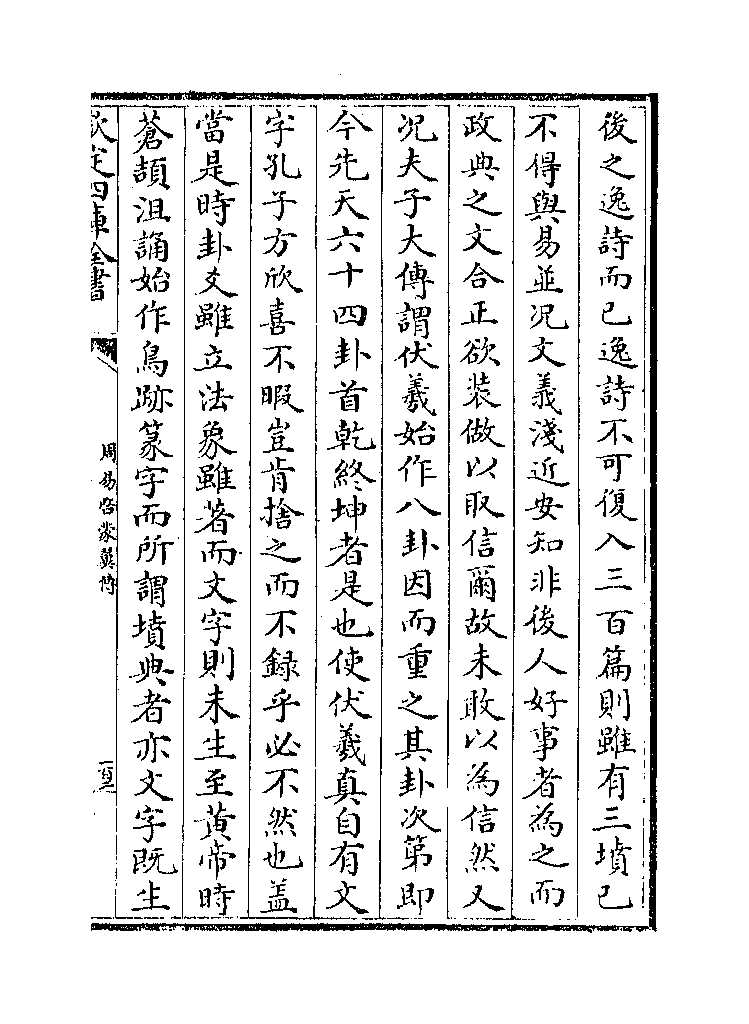 後之逸詩而已逸詩不可復入三百篇則雖有三墳已
不得與易並况文義淺近安知非後人好事者為之而
政典之文合正欲装做以取信爾故未敢以為信然又
况夫子大傳謂伏羲始作八卦因而重之其卦次第即
今先天六十四卦首乾終坤者是也使伏羲真自有文
字孔子方欣喜不暇豈肯捨之而不録乎必不然也盖
當是時卦爻雖立法象雖著而文字則未生至黄帝時
蒼頡沮誦始作鳥跡篆字而所謂墳典者亦文字既生
欽定四庫全書
周易啓蒙翼傳